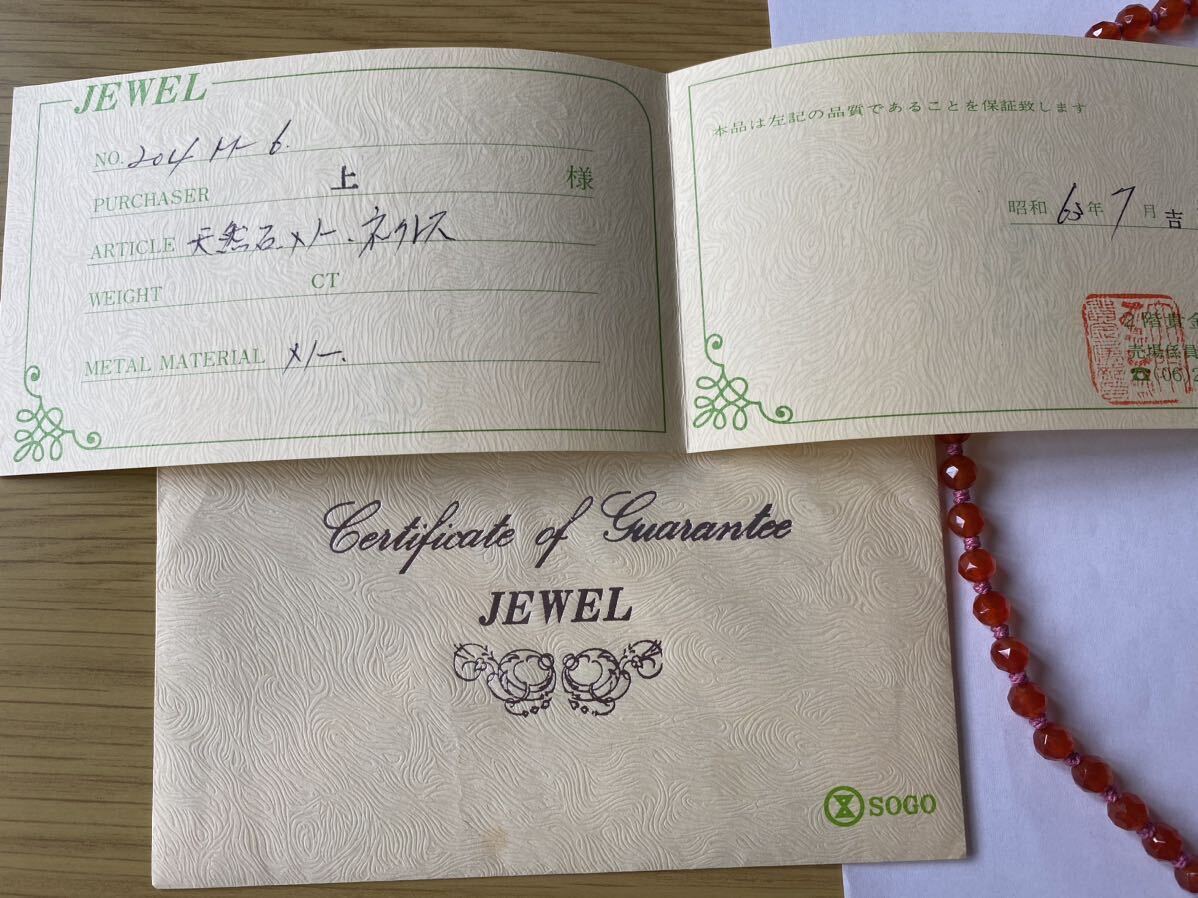 JEWEL
NO. 204 M-6.
PURCHASER 上 様
ARTICLE 天然石 メノー、ネクレス
WEIGHT CT
METAL MATERIAL メノー.
本品は左記の品質であることを保証致します
昭和 63年 7月吉
2階貴金
売場係員
☎(06)2
Certificate of Guarantee
JEWEL
SOGO